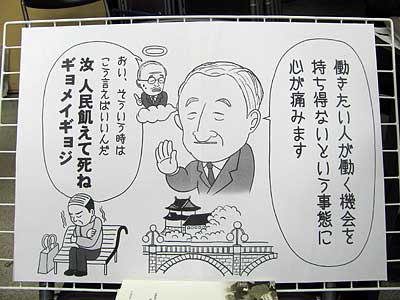 働きたい人が働く機会を
持ち得ないという事態に
心が痛みます
おい、そういう時は
こう言えばいいんだ
汝 人民飢えて死ね
ギョメイギョジ